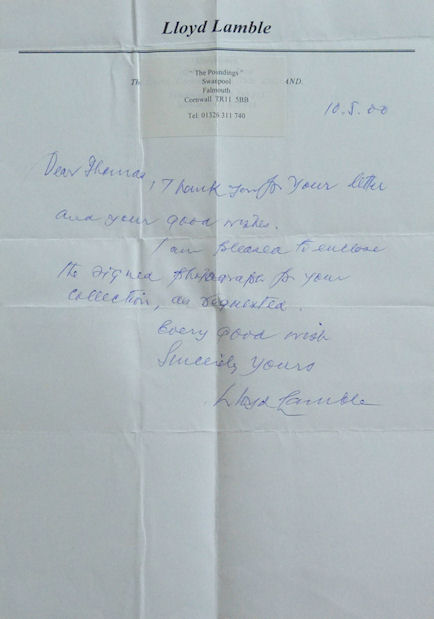 Lloyd Lamble
"The Poundings"
Swanpool
Th AND.
Falmouth
Cornwall TR11 5BB
Tel: 01326 311 740
10.5.00
Dear Thomas, Thank you for your letter
and your good wishes.
I am pleased to enclose
the signed photograph for your
collection, as requested.
Every good wish
Sincerely Yours
Lloyd Lamble